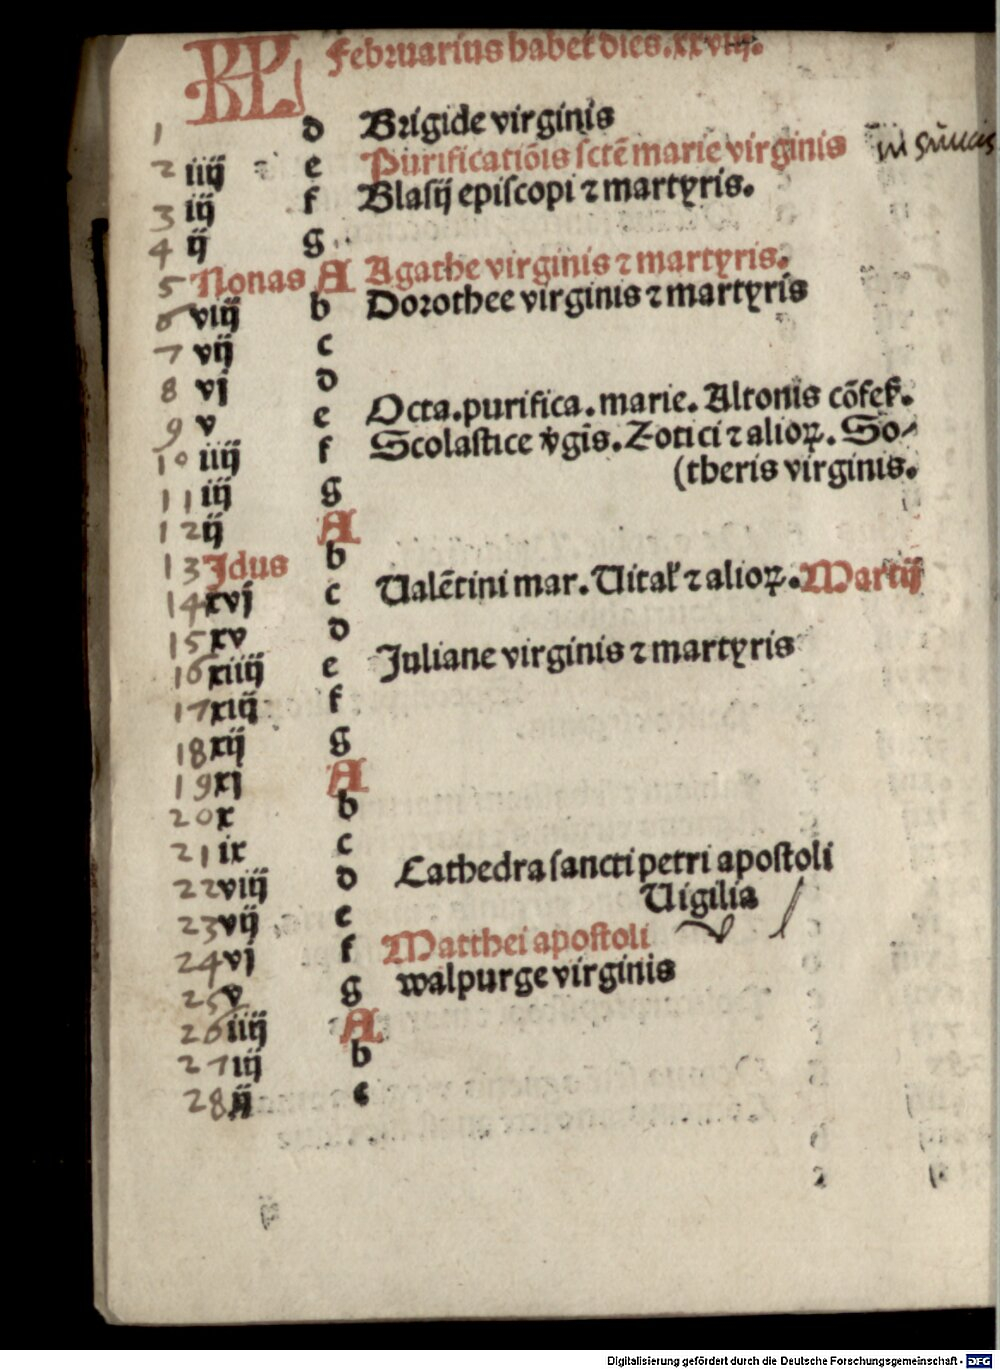 KL Februarius habet dies.xxviij.
1 d Brigide virginis
2 iiij e Purificatiōis sctē marie virginis
3 iij f Blasij episcopi ⁊ martyris.
4 ij g
5 Nonas A Agathe virginis ⁊ martyris.
6 viij b Dorothee virginis ⁊ martyris
7 vij c
8 vj d
9 v e Octa.purifica.marie.Altonis cōfeſ.
10 iiij f Scolastice v̄gīs.Zotici ⁊ alioꝝ.So-
11 iij g (theris virginis.
12 ij A
13 Jdus b
14 xvj c Ualētini mar.Uital ⁊ alioꝝ.Martij
15 xv d
16 xiiij e Juliane virginis ⁊ martyris
17 xiij f
18 xij g
19 xj A
20 x b
21 ix c
22 viij d Cathedra sancti petri apostoli
23 vij e Uigilia
24 vj f Matthei apostoli
25 v g walpurge virginis
26 iiij A
27 iij b
28 ij c
Digitalisierung gefördert durch die Deutsche Forschungsgemeinschaft - DFG